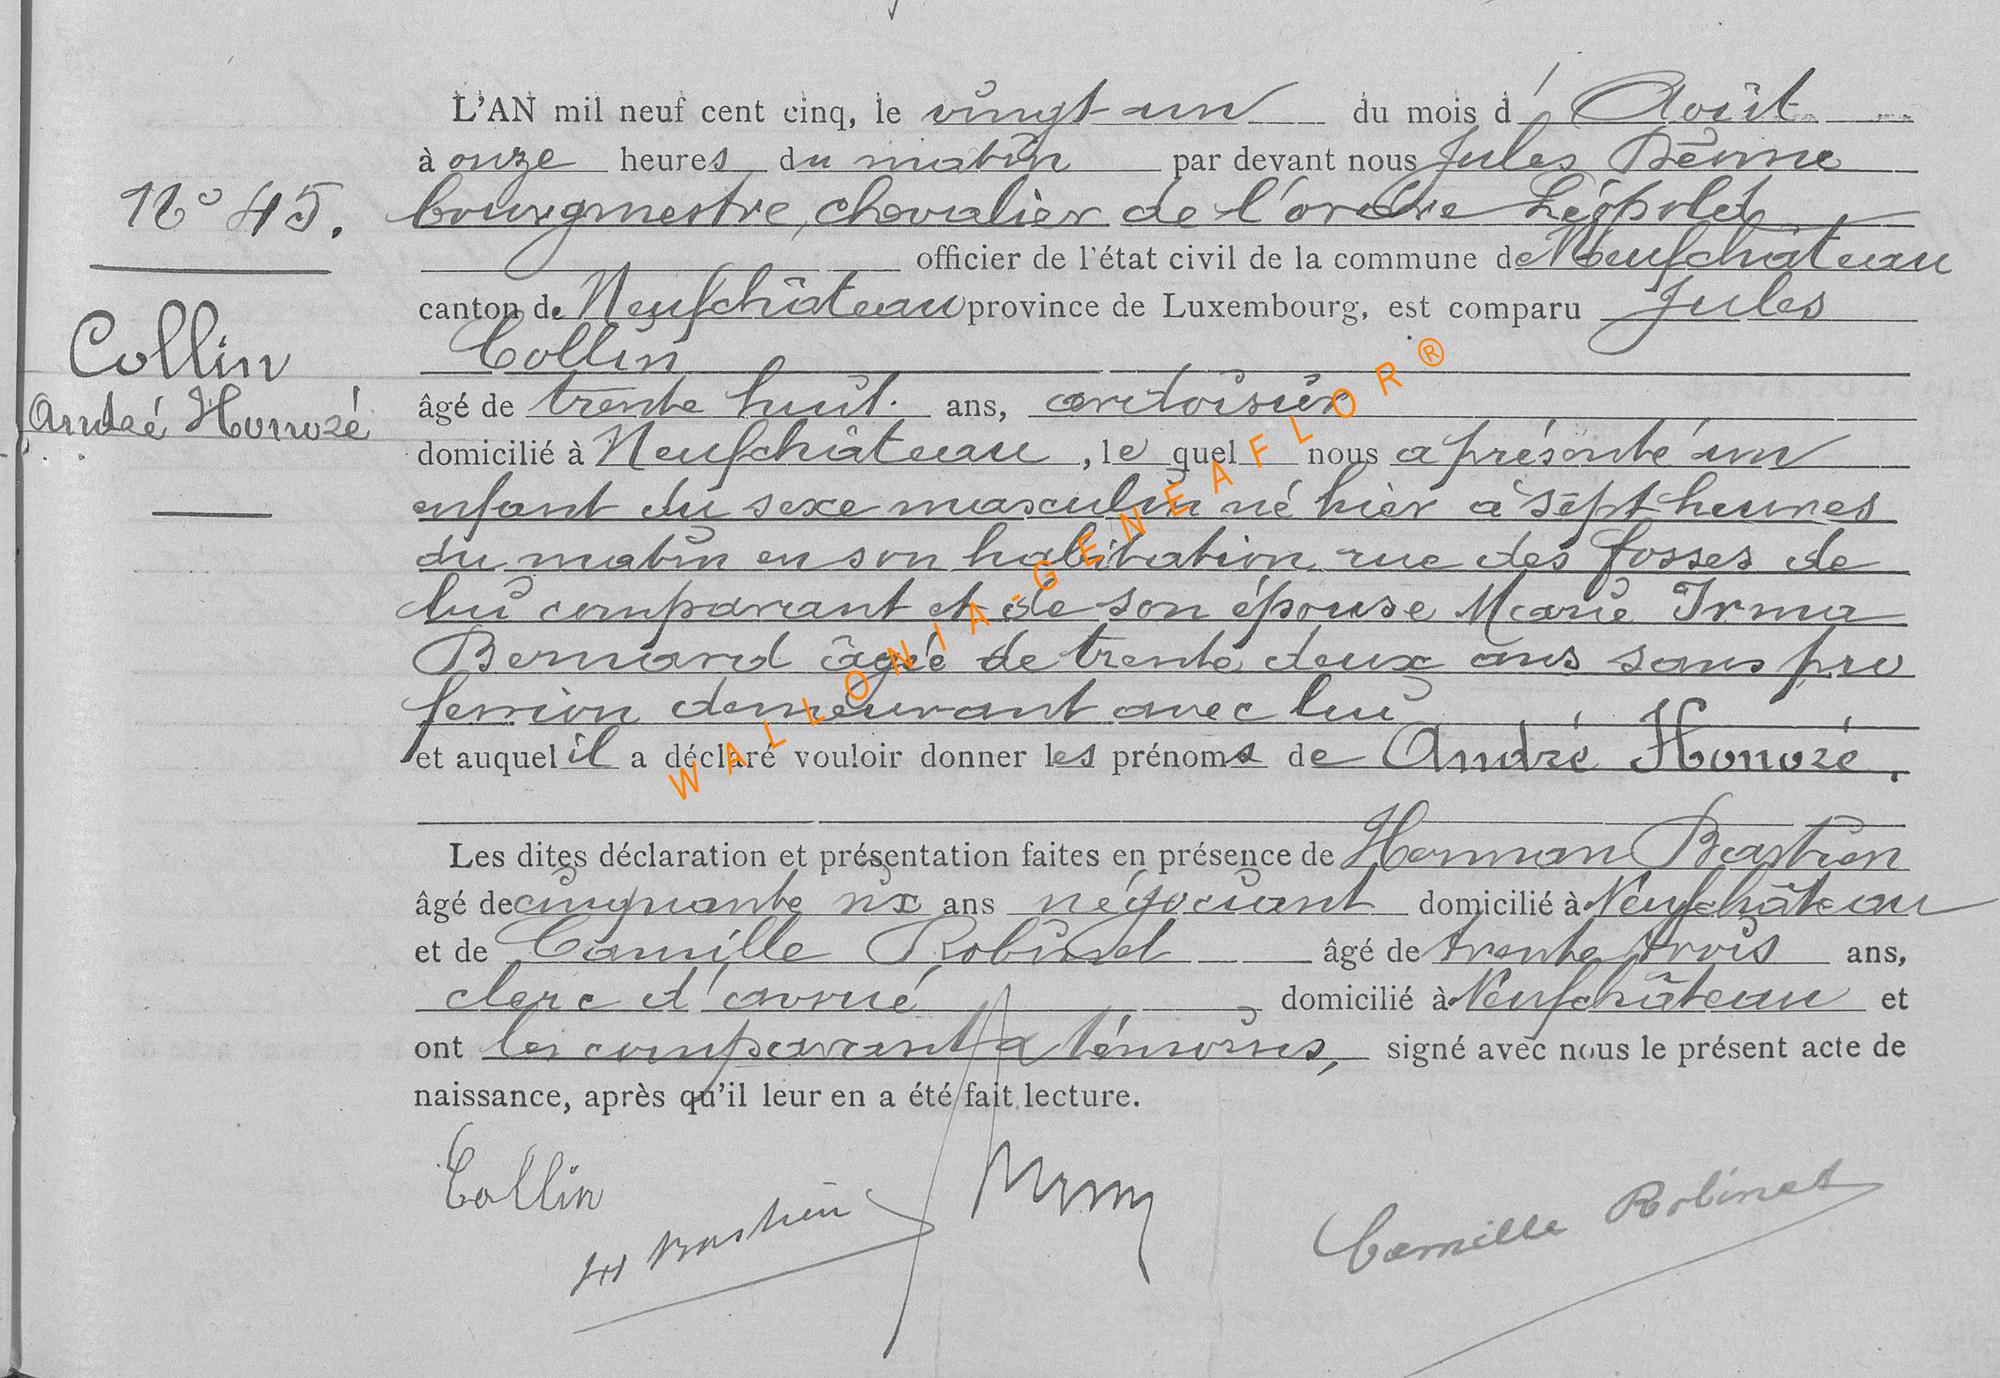 L'AN mil neuf cent cinq, le vingt-un du mois d' Août
à onze heures du matin par devant nous Jules
N° 45.
bourgmestre, chevalier de l'ordre Léopold
officier de l'état civil de la commune de Neufchâteau
canton de Neufchâteau province de Luxembourg, est comparu Jules
Collin
Collin
André Honoré
âgé de trente huit ans, ardoisier
domicilié à Neufchâteau, le quel nous a présenté un
enfant du sexe masculin né hier à sept heures
du matin en son habitation rue des fosses de
lui comparant et de son épouse Marie Irma
Bernard âgée de trente deux ans sans pro
fession demeurant avec lui
et auquel il a déclaré vouloir donner les prénoms de André Honoré.
Les dites déclaration et présentation faites en présence de Herman Bastien
âgé de cinquante six ans négociant domicilié à Neufchâteau
et de Camille Robinet âgé de trente trois ans,
clerc d'avoué domicilié à Neufchâteau et
ont les comparant & témoins, signé avec nous le présent acte de
naissance, après qu'il leur en a été fait lecture.
Collin
H Bastien
Camille Robinet
WALLONIA-GENEAFLOR®